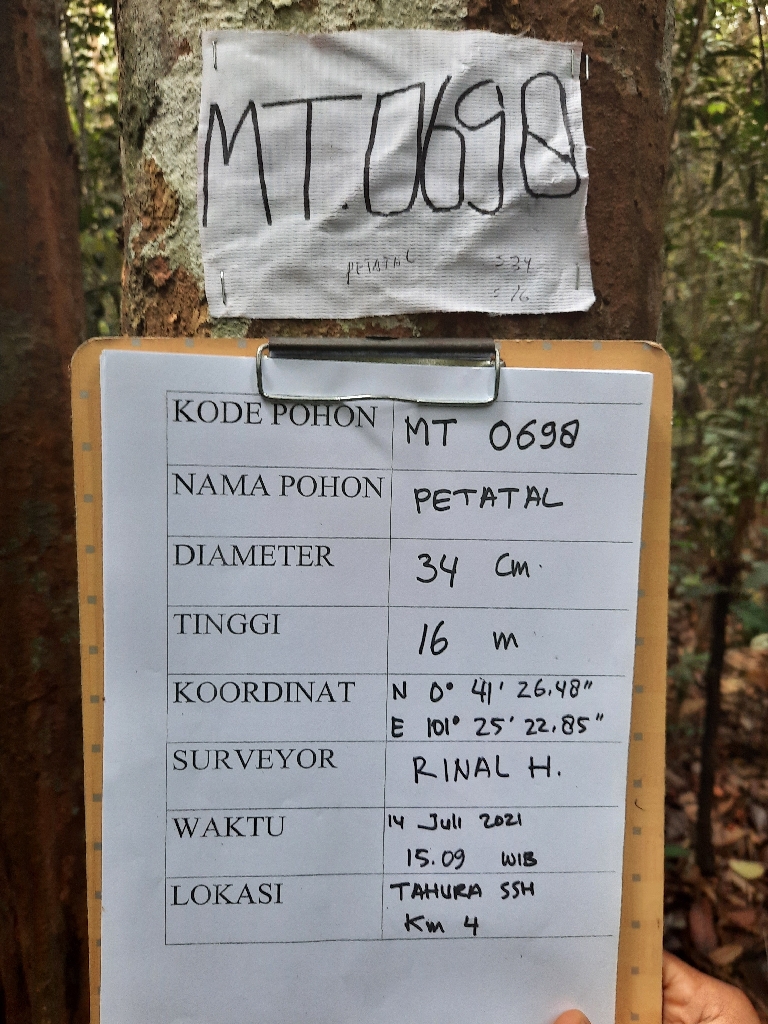 MT.0698
PETATAL 34
16
KODE POHON MT 0698
NAMA POHON PETATAL
DIAMETER 34 Cm
TINGGI 16 m
KOORDINAT N 0° 41' 26.48"
E 101° 25' 22.85"
SURVEYOR RINAL H.
WAKTU 14 Juli 2021
15.09 WIB
LOKASI TAHURA SSH
Km 4